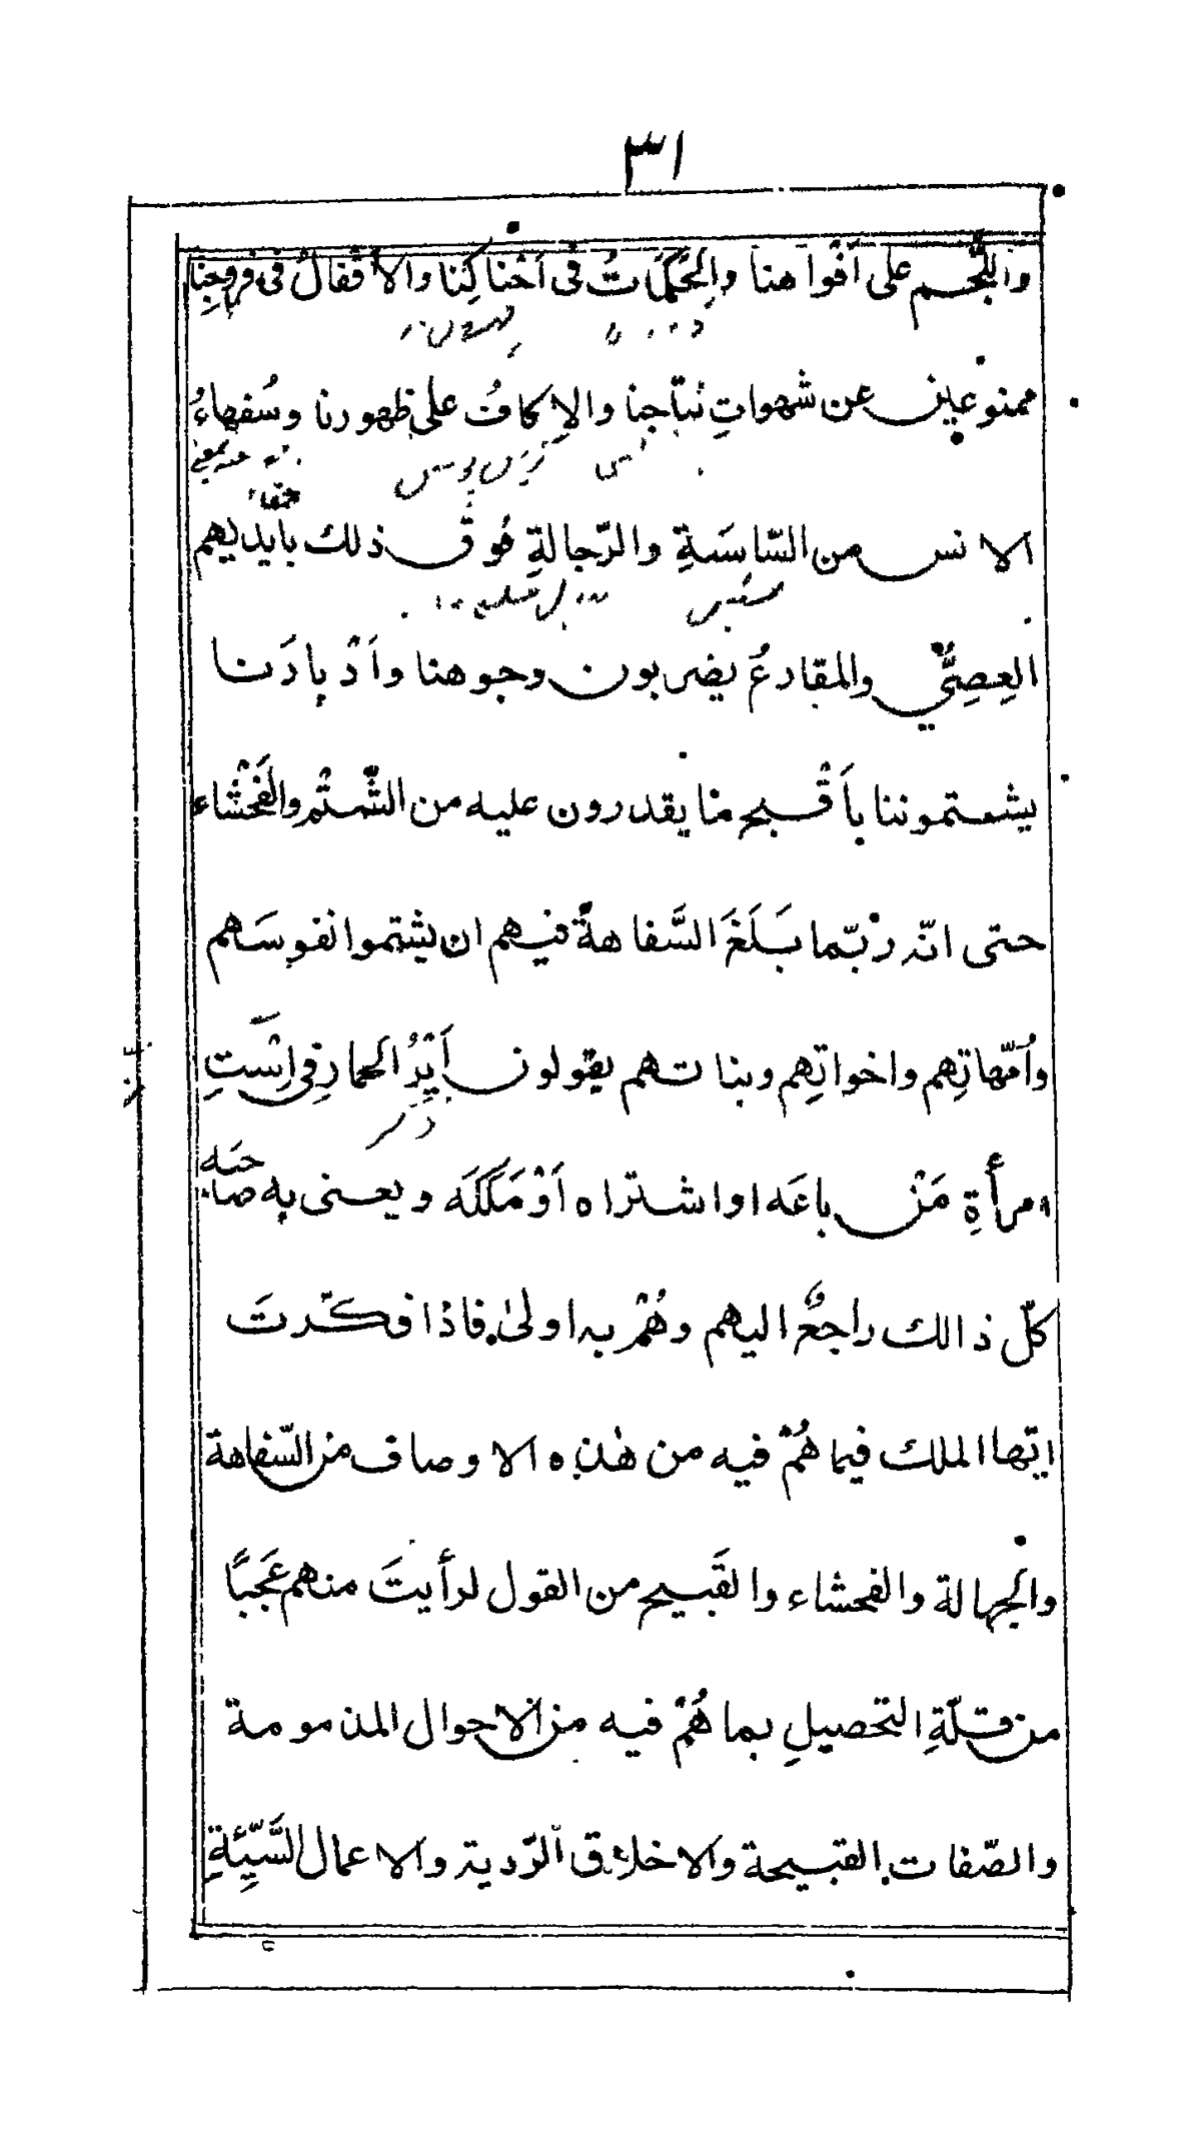 ٣١
واللُّجُم على اَفْواهنا والحَكَمَاتُ فى اَحْناكِنا والاَقْفالُ فى فروجِنا
ممنوعين عن شهواتِ نتاجنا والاِكافُ على ظهورنا وسُفهاءُ
الانس من السّاسَةِ والرّجالةِ فوق ذلك بأيديهم
العِصِيُّ والمقارعُ يضربون وجوهنا واَدْبارَنا
يشتموننا باَقْبح ما يقدرون عليه من الشّتْم والفَحْشاء
حتى انّه رُبّما بَلَغَ السَّفاهةُ فيهم ان يشتموا نفوسَهم
واُمّهاتِهم واخواتِهم وبناتهم يقولون اَيْرُ الحمار فى اِسْتِ
امرأةِ مَنْ باعَه او اشتراه اَوْ مَلَكَه ويعنى به صاحبَه
كلّ ذالك راجعٌ اليهم وهُمْ به اولىٰ فاذا فكّرتَ
ايّها الملك فيما هُمْ فيه من هٰذه الاوصاف من السّفاهة
والجهالة والفحشاء والقَبيح من القول لرأيتَ منهم عَجَبًا
من قلّةِ التحصيلِ بما هُمْ فيه من الاحوال المذمومة
والصّفات القبيحة والاخلاق الرّدية والاعمال السَّيِّئَةِ